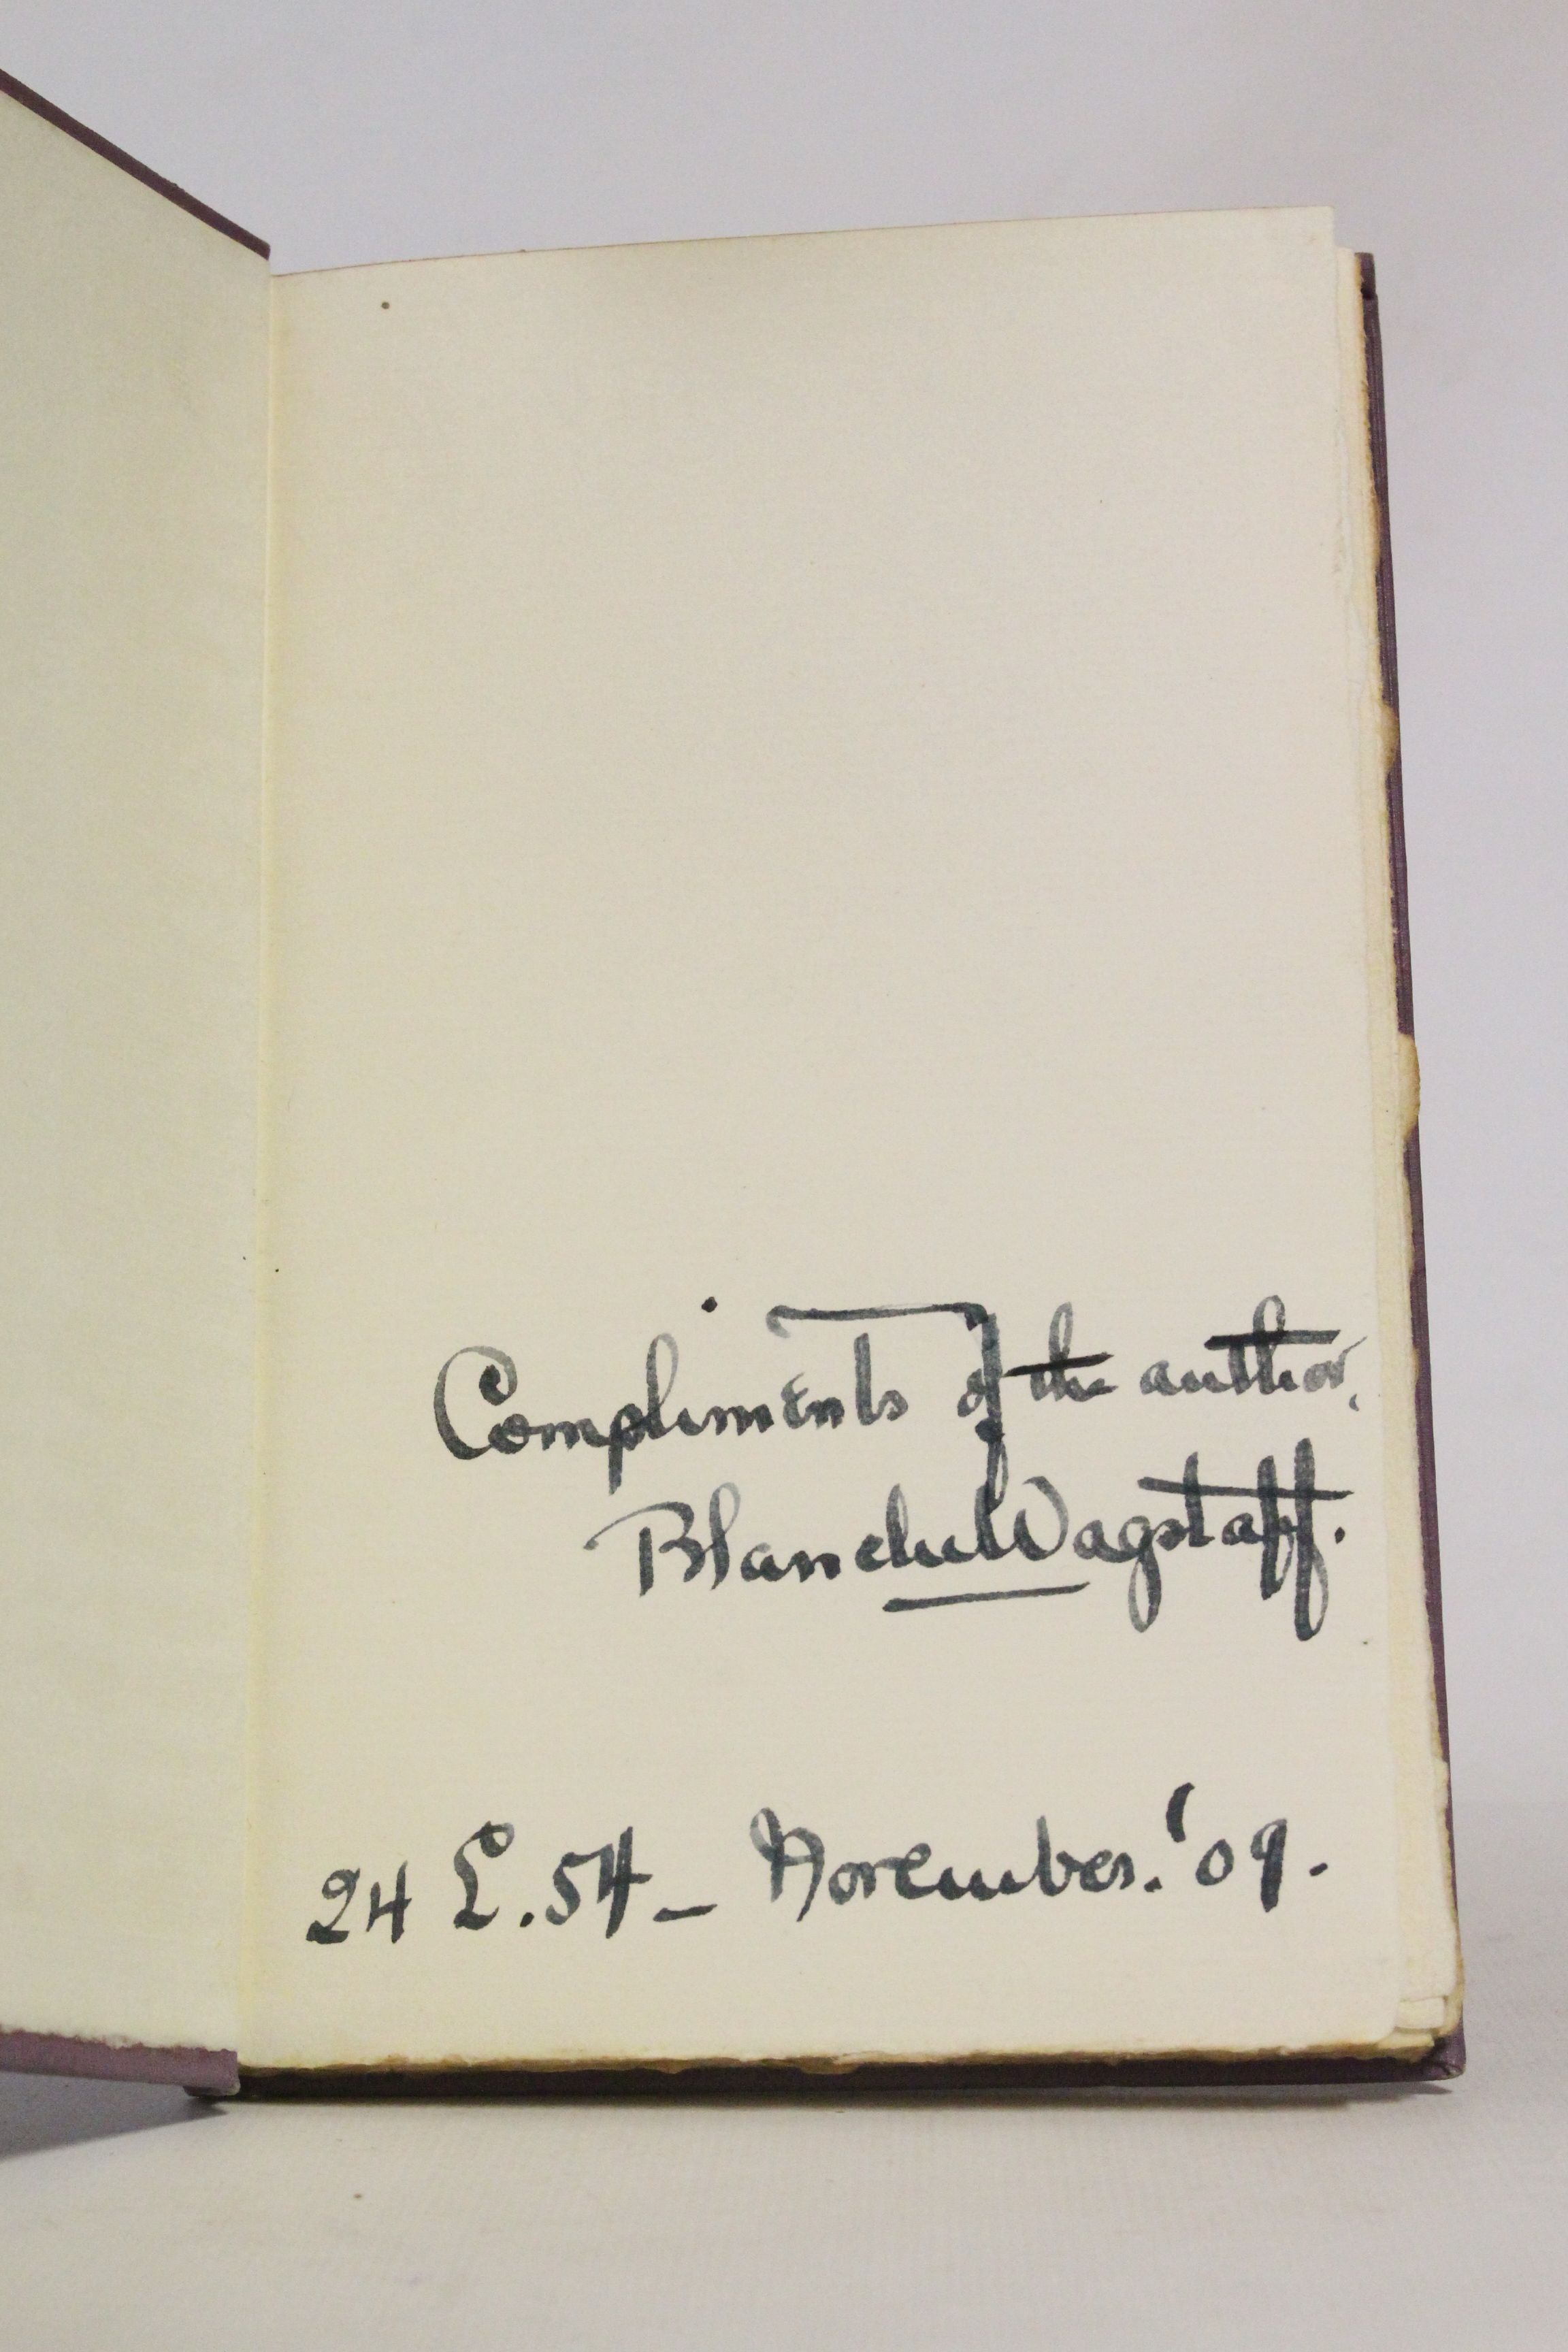 Compliments of the author.
Blanche Wagstaff.
24 E. 54 – November. '09.